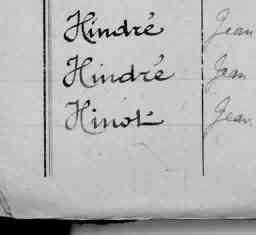 Hindré Jean
Hindré Jean
Hinot Jean